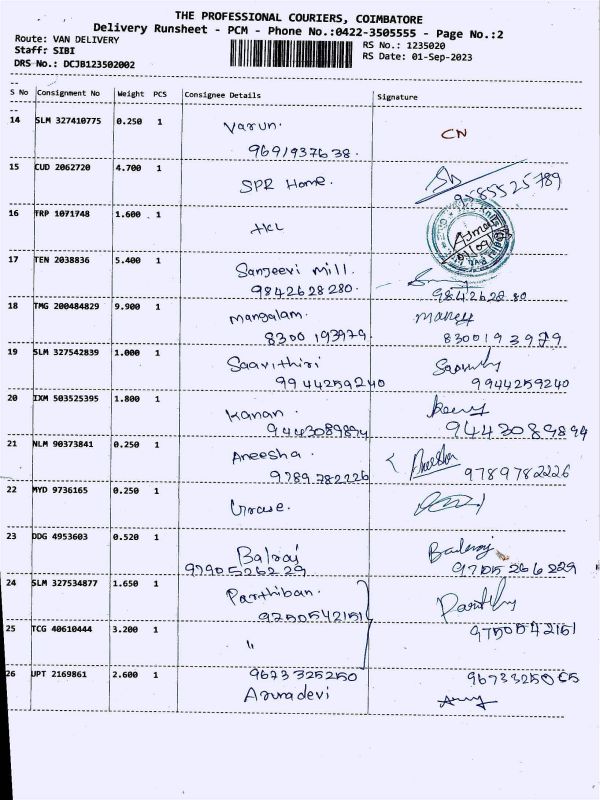 THE PROFESSIONAL COURIERS, COIMBATORE
Delivery Runsheet - PCM - Phone No.:0422-3505555 - Page No.:2
Route: VAN DELIVERY
RS No.: 1235020
Staff: SIBI
RS Date: 01-Sep-2023
DRS No.: DCJB123502002
S No Consignment No Weight PCS Consignee Details Signature
14 SLM 327410775 0.250 1 Varun. CN
9691937638.
15 CUD 2062720 4.700 1 SPR Home. 9585525789
16 TRP 1071748 1.600 1 HCL
17 TEN 2038836 5.400 1 Sanjeevi mill.
9842628280. 9842628 80
18 TMG 200484829 9.900 1 mangalam.
8300 193979. 8300193979
19 SLM 327542839 1.000 1 Saavithiri
9944259240 9944259240
20 IXM 503525395 1.800 1 Kanan.
9443089894 9443089894
21 NLM 90373841 0.250 1 Aneesha.
9789782226 9789782226
22 MYD 9736165 0.250 1
23 DDG 4953603 0.520 1 Balraj
9790526229
24 SLM 327534877 1.650 1 Parthiban.
9750542151 9750542151
25 TCG 40610444 3.200 1 "
26 UPT 2169861 2.600 1 9673325250
Arunadevi